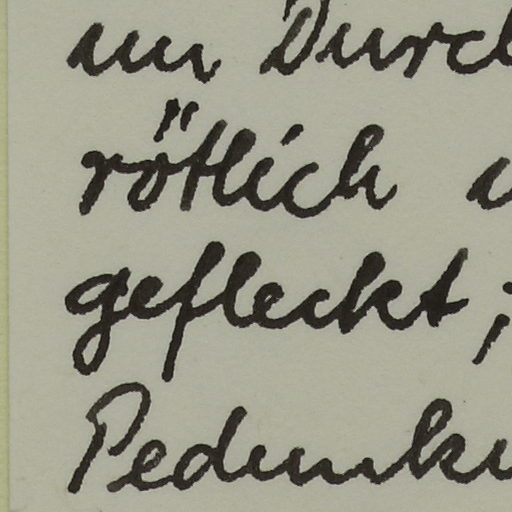 im Durch
rötlich
gefleckt;
Pedunku